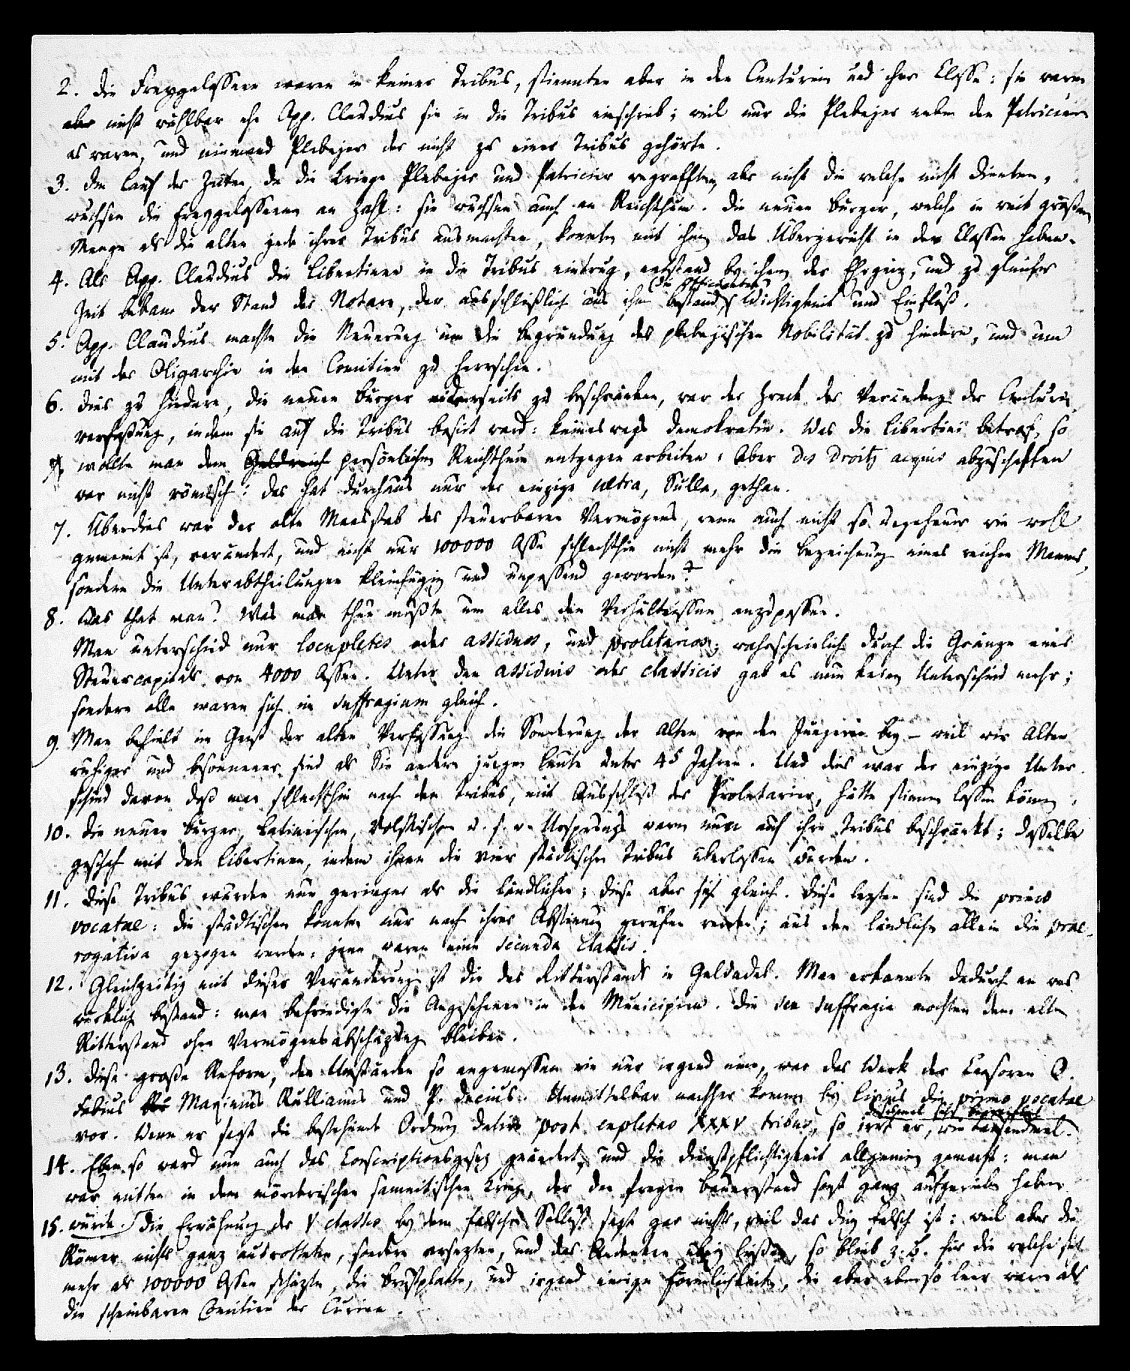 2. Die Freygelassenen waren in keiner Tribus, stimmten aber in den Centurien und ihrer Classe: sie waren
aber nicht wählbar ehe App. Claudius sie in die Tribus einschrieb; weil nur die Plebejer neben den Patriciern
es waren, und niemand Plebejer der nicht zu einer Tribus gehörte.
3. Im Lauf der Zeiten, da die Kriege Plebejer und Patricier wegrafften, aber nicht die welche nicht dienten,
wuchsen die Freygelassenen an Zahl: sie wuchsen auch an Reichthum. Die neuen Bürger, welche in weit größrer
Menge als die alten jede ihrer Tribus ausmachten, konnten mit ihnen das Übergewicht in den Classen haben.
4. Als App. Claudius die Libertinen in die Tribus eintrug, entstand bey ihnen der Ehrgeiz, und zu gleicher
Zeit bekam der Stand der Notare, der ausschließlich aus ihnen bestand, Wichtigkeit und Einfluß.
5. App. Claudius machte die Neuerung um die Begründung der plebejischen Nobilität zu hindern, und um
mit der Oligarchie in den Comitien zu herrschen.
6. Dies zu hindern, die neuen Bürger andrerseits zu beschränken, war der Zweck der Veränderg der Centurien
verfaßung, indem sie auf die Tribus basirt ward: keineswegs demokratie. Was die Libertini betraf, so
wollte man dem persönlichen Reichthum entgegen arbeiten: Aber des droits acquis abzuschaffen
war nicht römisch: das hat durchaus nur der einzige ultra, Sulla, gethan.
7. Überdies war der alte Maasstab des steuerbaren Vermögens, wenn auch nicht so ungeheuer wie wohl
gemeint ist, verändert, und nicht nur 100000 Asse schlechthin nicht mehr die Bezeichnung eines reichen Mannes,
sondern die Unterabtheilungen kleinfügig und unpassend geworden.
8. Was that man? Was man thun mußte um alles den Verhältnissen anzupassen.
Man unterschied nur locupletes oder assiduos, und proletarios; wahrscheinlich durch die Gränze eines
Steuercapitals von 4000 Assen. Unter den assiduis oder classicis gab es nun keinen Unterschied mehr;
sondern alle waren sich in suffragium gleich.
9. Man behielt im Geist der alten Verfassung die Sonderung der Alten von den Jüngeren bey – weil wir Alten
ruhiger und besonnener sind als Sie andern jungen Leute unter 45 Jahren. Und dies war der einzige Unter-
schied davon daß man schlechthin nach den Tribus, mit Ausschluß der Proletarier, hätte stimmen lassen können.
10. Die neuen Bürger, Latinischen, Volskischen u. s. w. Ursprungs waren nun auf ihre Tribus beschränkt; dasselbe
geschah mit den Libertinen, indem ihnen die vier städtischen Tribus überlassen wurden.
11. Diese Tribus wurden nun geringer als die ländlichen; diese aber sich gleich. Diese lezten sind die primo
vocatae: die städtischen konnten nur nach ihrer Abstimmung gerufen werden; aus den ländlichen allein die prae-
rogativa gezogen werden: jene waren eine secunda classis.
12. Gleichzeitig mit dieser Veränderung ist die des Ritterstands in Geldadel. Man erkannte dadurch an was
wirklich bestand: man befriedigte die Angesehenen in den Municipien. Die sex suffragia mochten dem alten
Ritterstand ohne Vermögensabschäzung bleiben.
13. Diese große Reform, den Umständen so angemessen wie nur irgend eine, war das Werk der Censoren Q.
Fabius Maximus Rullianus und P. Decius. Unmittelbar nachher kommen bey Livius die primo vocatae
vor. Wenn er sagt die bestehende Ordnung datire post expletas XXXV tribus, so irrt er, wie tausendmal.
14. Eben so ward nun auch das Conscriptionsgesez geändert, und die Dienstpflichtigkeit allgemein gemacht: man
war mitten in dem mörderischen samnitischen Krieg, der den freyen Bauernstand sonst ganz aufgerieben haben
würde.
15. Die Erwähnung der V classis bey dem falschen Sallust sagt gar nichts, weil das Ding falsch ist: weil aber die
Römer nichts ganz ausrotteten, sondern ersezten, und das Andenken übrig ließen, so blieb z. B. für die welche sich
mehr als 100000 Assen schäzten, die Brustplatte, und irgend einige Förmlichkeiten, die aber ebenso leer waren als
die scheinbaren Comitien der Curien.